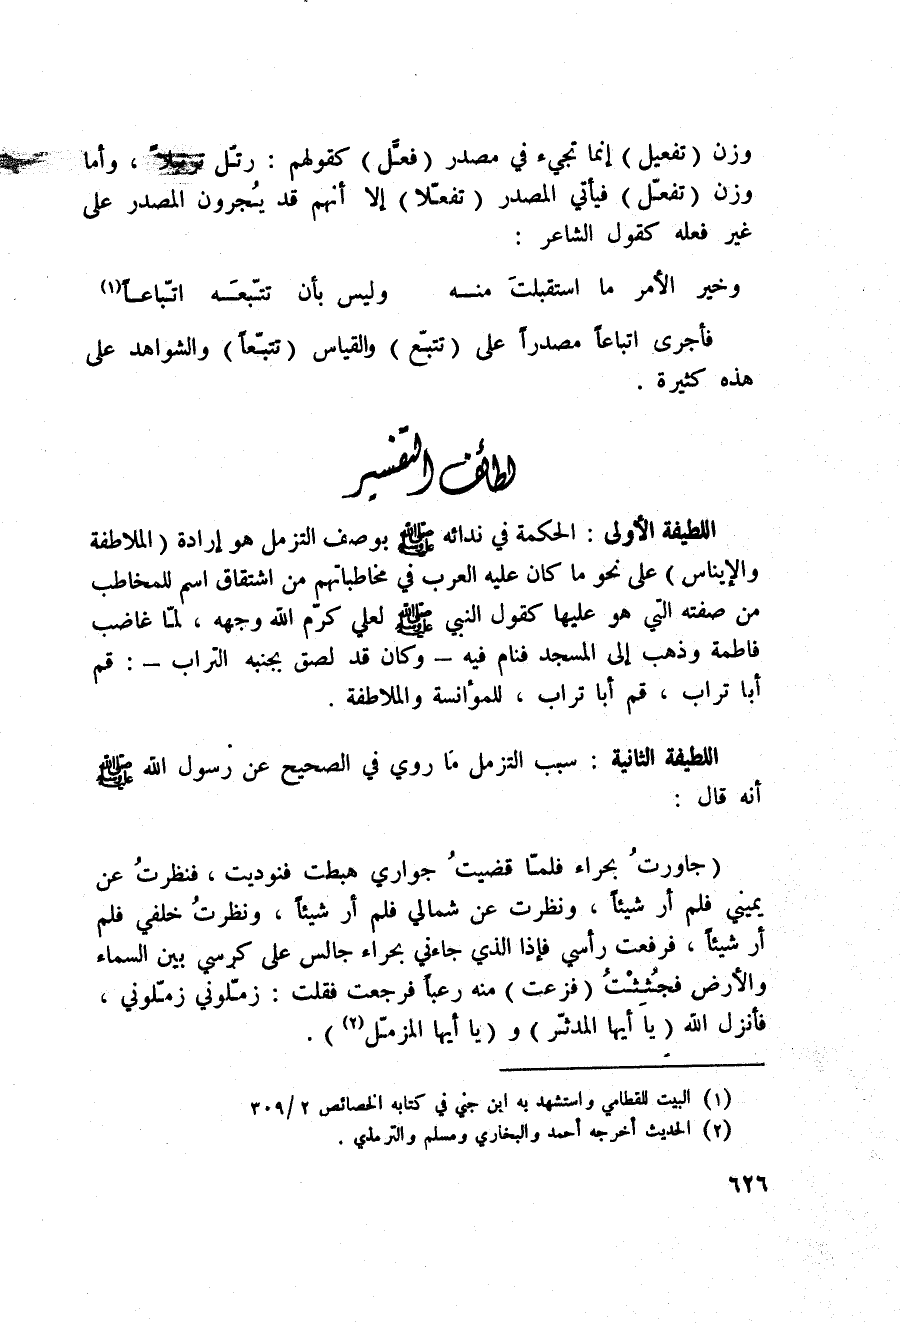 وزن ( تفعيل ) إنما تجيء في مصدر ( فعَّل ) كقولهم : رتّل ترتيلاً ، وأما
وزن ( تفعّل ) فيأتي المصدر ( تفعّلا ) إلا أنهم قد يُجرون المصدر على
غير فعله كقول الشاعر :
وخير الأمر ما استقبلتَ منـــه وليس بأن تتّبعَــه اتّباعــاً(١)
فأجرى اتباعاً مصدراً على ( تتبّع ) والقياس ( تتبّعاً ) والشواهد على
هذه كثيرة .
لطائف التفسير
اللطيفة الأولى : الحكمة في ندائه ﷺ بوصف التزمل هو إرادة ( الملاطفة
والإيناس ) على نحو ما كان عليه العرب في مخاطباتهم من اشتقاق اسم للمخاطب
من صفته التي هو عليها كقول النبي ﷺ لعلي كرّم الله وجهه ، لمّا غاضب
فاطمة وذهب إلى المسجد فنام فيه – وكان قد لصق بجنبه التراب – : قم
أبا تراب ، قم أبا تراب ، للموأنسة والملاطفة .
اللطيفة الثانية : سبب التزمل ما روي في الصحيح عن رسول الله ﷺ
أنه قال :
( جاورتُ بحراء فلمّا قضيتُ جواري هبطت فنوديت ، فنظرتُ عن
يميني فلم أر شيئاً ، ونظرت عن شمالي فلم أر شيئاً ، ونظرتُ خلفي فلم
أر شيئاً ، فرفعت رأسي فإذا الذي جاءني بحراء جالس على كرسي بين السماء
والأرض فجُئِثْتُ ( فزعت ) منه رعباً فرجعت فقلت : زمّلوني زمّلوني ،
فأنزل الله ( يا أيها المدثّر ) و ( يا أيها المزمّل(٢) ) .
(١) البيت للقطامي واستشهد به ابن جني في كتابه الخصائص ٣٠٩/٢
(٢) الحديث أخرجه أحمد والبخاري ومسلم والترمذي .
٦٢٦